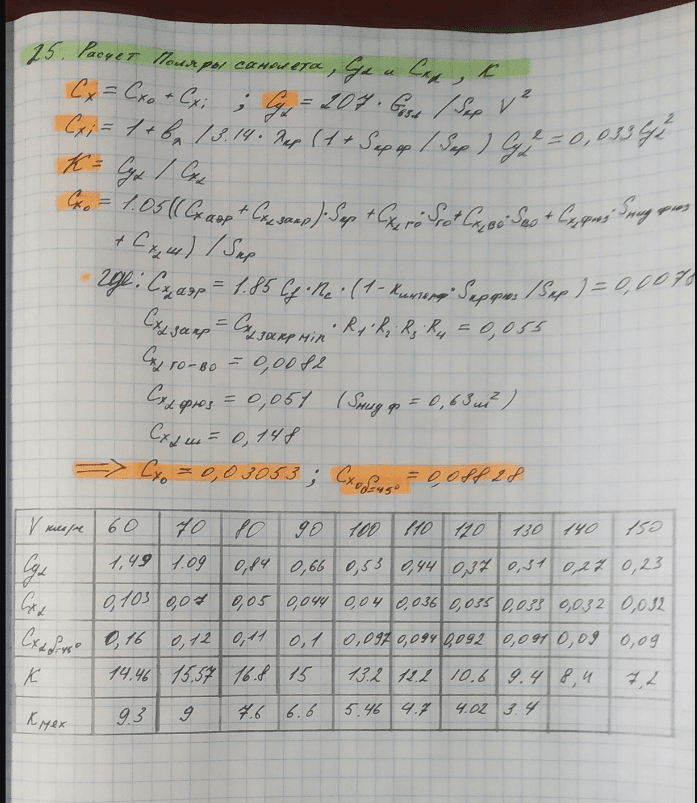 25. Расчет Поляры самолета, Cyα и Cxα, K
Cx = Cx₀ + Cxi ; Cyα = 207 · Gвзл / Sкр V²
Cxi = 1 + bл / 3.14 · λкр (1 + Sкрф / Sкр) Cyα² = 0,033Cyα²
K = Cyα / Cxα
Cx₀ = 1.05((Cxαэр + Cxαзакр)·Sкр + CxαГО·SГО + CxαВО·SВО + Cxαфюз·Sмидфюз
+ Cxαш) / Sкр
где: Cxαэр = 1.85 Cf · ηc · (1 - Kинтерф · Sкрфюз / Sкр) = 0,0078
Cxαзакр = Cxαзакр min · R₁ · R₂ · R₃ · R₄ = 0,055
CxαГО-ВО = 0,0082
Cxαфюз = 0,051 (Sмид ф = 0,63м²)
Cxαш = 0,148
⟹ Cx₀ = 0,03053 ; Cx₀δ=45° = 0,08828
V км/ч 60 70 80 90 100 110 120 130 140 150
Cyα 1,49 1.09 0,84 0,66 0,53 0,44 0,37 0,31 0,27 0,23
Cxα 0,103 0,07 0,05 0,044 0,04 0,036 0,035 0,033 0,032 0,032
Cxαδ=45° 0,16 0,12 0,11 0,1 0,097 0,094 0,092 0,091 0,09 0,09
K 14.46 15.57 16.8 15 13.2 12.2 10.6 9.4 8,4 7,2
Kмех 9.3 9 7.6 6.6 5.46 4.7 4.02 3.4